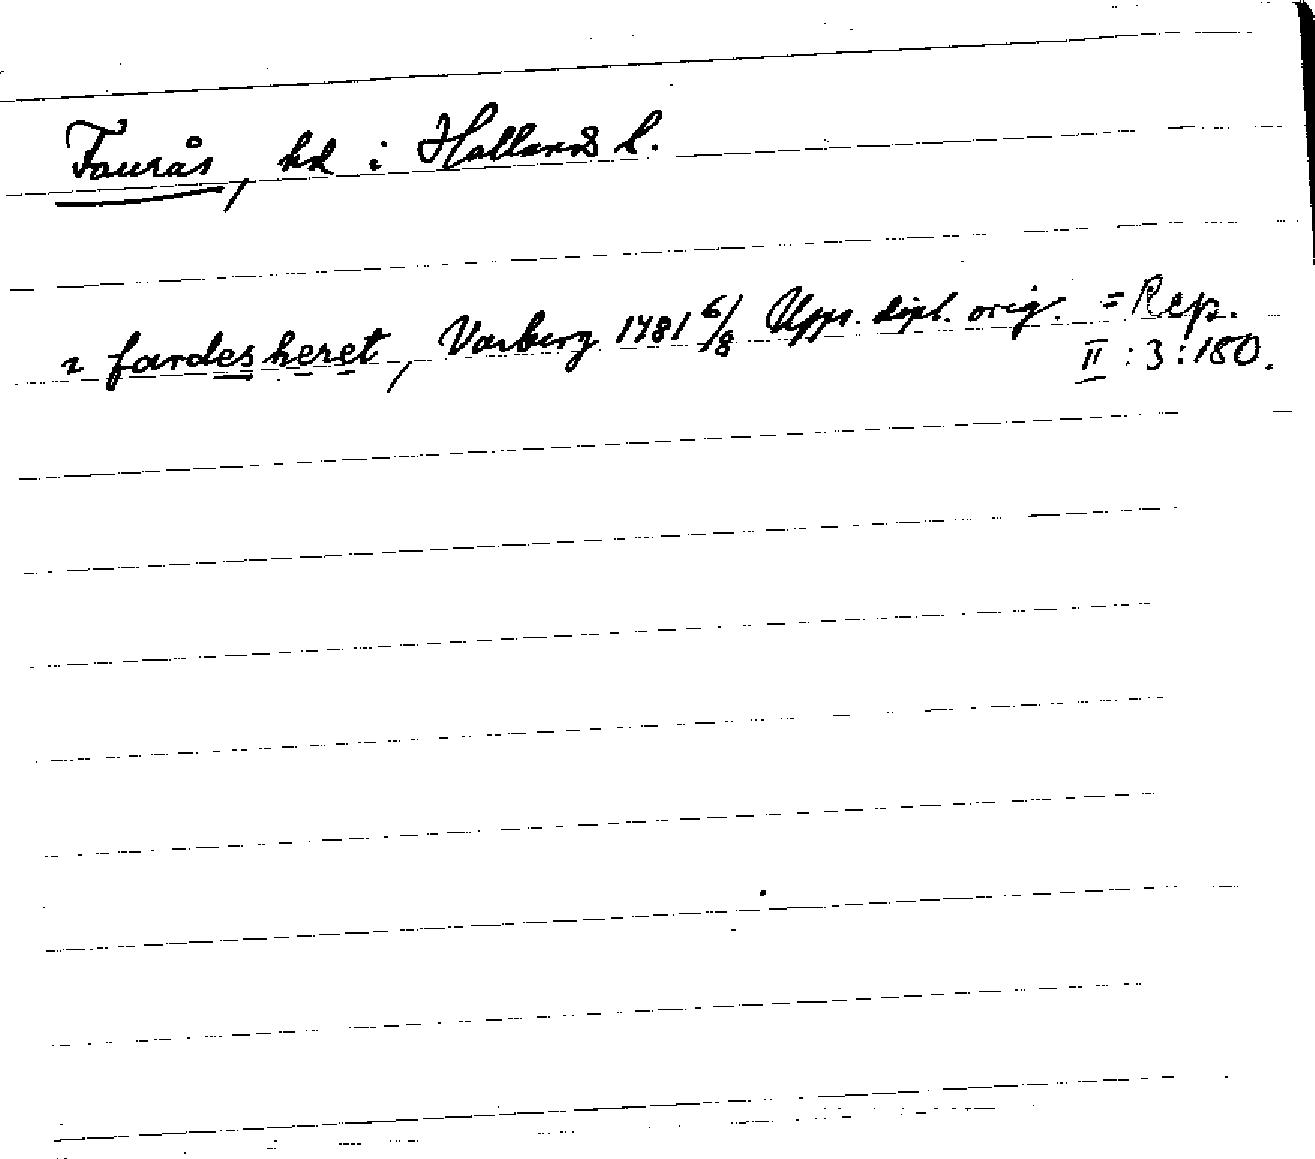 Faurås, hd i Hallands l.
i fardes heret, Varberg 1481 6/8 Upps. dipl. orig. = Rep.
II : 3 : 180.